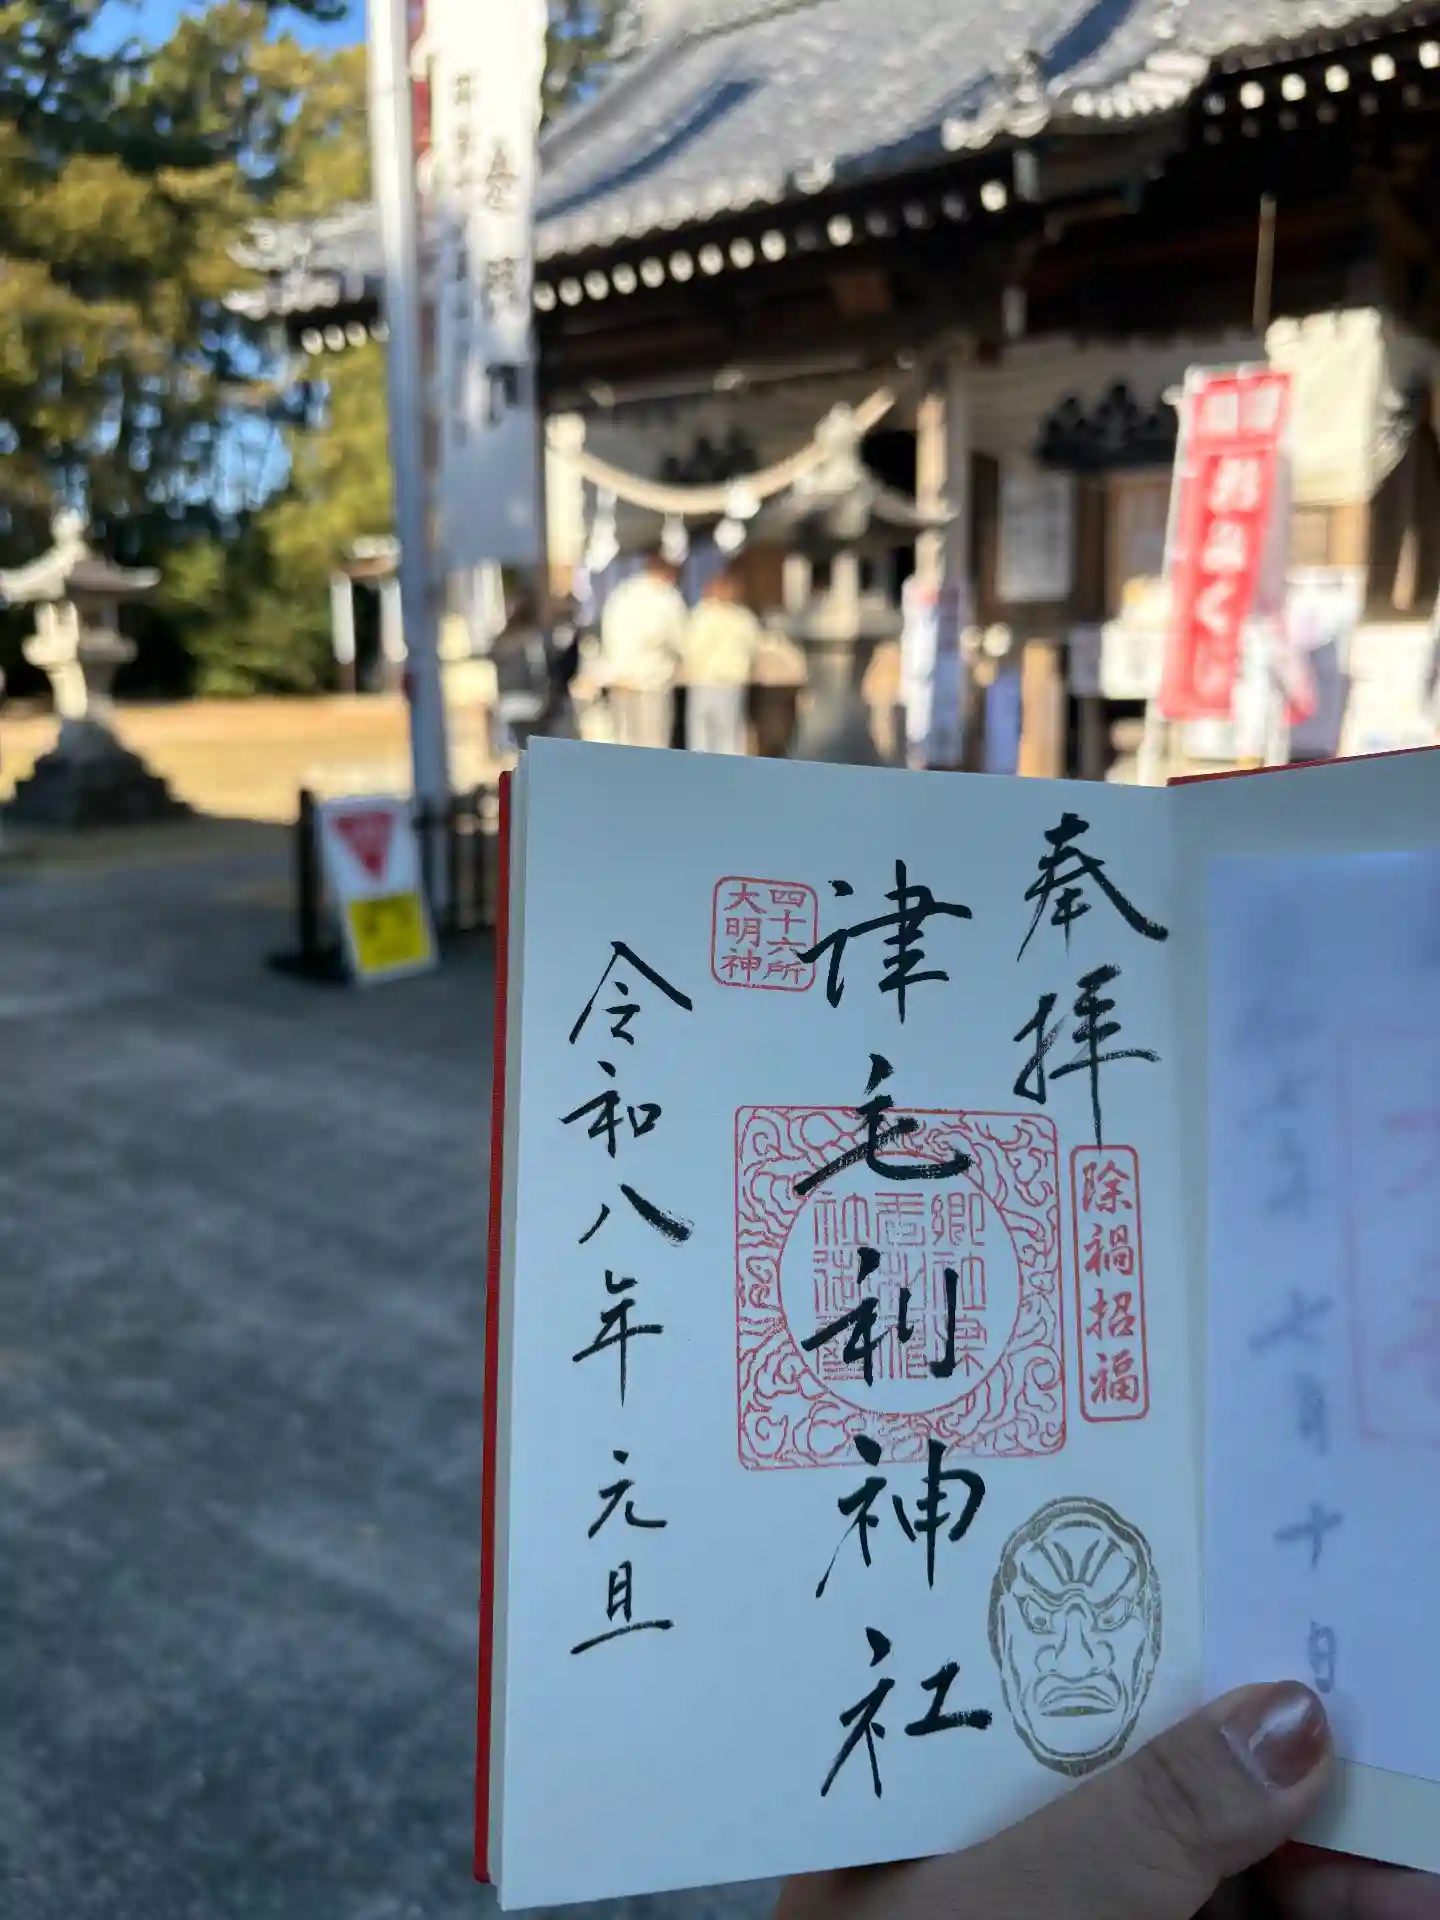 おみくじ
奉拝
除禍招福
津毛利神社
四十六所
大明神
令和八年元旦
七月十日